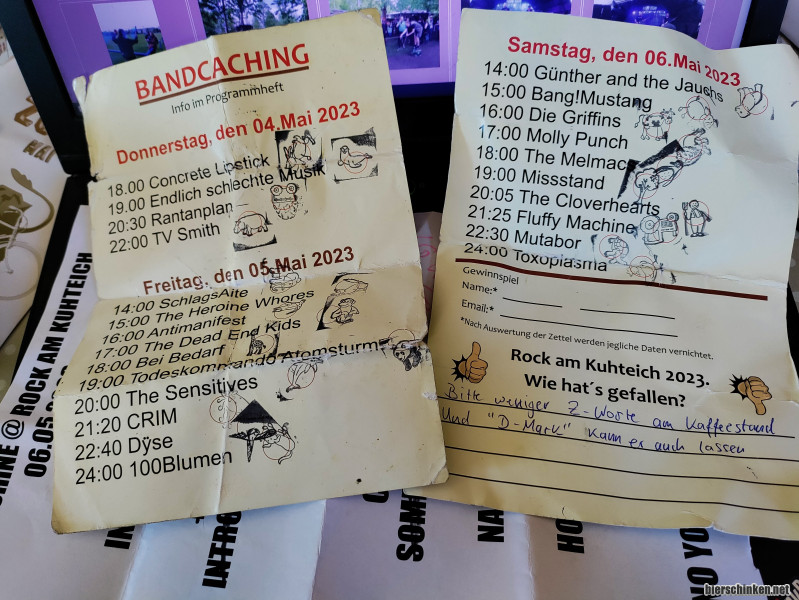 BANDCACHING
Info im Programmheft
Donnerstag, den 04.Mai 2023
18.00 Concrete Lipstick
19.00 Endlich schlechte Musik
20:30 Rantanplan
22:00 TV Smith
Freitag, den 05.Mai 2023
14:00 SchlagsAite
15:00 The Heroine Whores
16:00 Antimanifest
17:00 The Dead End Kids
18:00 Bei Bedarf
19:00 Todeskommando Atomsturm
20:00 The Sensitives
21:20 CRIM
22:40 Dÿse
24:00 100Blumen
Samstag, den 06.Mai 2023
14:00 Günther and the Jauchs
15:00 Bang!Mustang
16:00 Die Griffins
17:00 Molly Punch
18:00 The Melmacs
19:00 Missstand
20:05 The Cloverhearts
21:25 Fluffy Machine
22:30 Mutabor
24:00 Toxoplasma
Gewinnspiel
Name:*
Email:*
*Nach Auswertung der Zettel werden jegliche Daten vernichtet.
Rock am Kuhteich 2023.
Wie hat´s gefallen?
Bitte weniger Z-Worte am Kaffeestand
Und "D-Mark" kann er auch lassen
@ ROCK AM KUHTEICH
06.05
INTRO
MAI
bierschinken.net